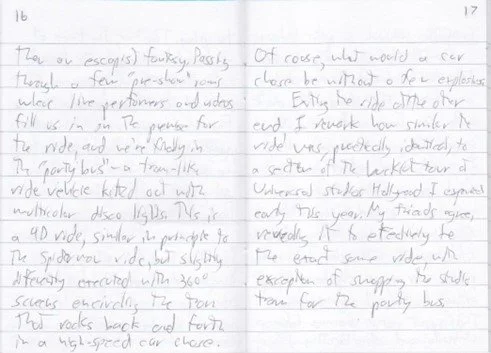 16
than an escapist fantasy. Passing
through a few "pre-show" rooms
where live performers and videos
fill us in on the premise for
the ride, and we're finally in
the "party bus" – a tram-like
ride vehicle kitted out with
multicolor disco lights. This is
a 4D ride, similar in principle to
the Spiderman ride, but slightly
differently executed with 360°
screens encircling the tram
that rocks back and forth
in a high-speed car chase.
17
Of course, what would a car
chase be without a few explosions
Exiting the ride at the other
end I remark how similar the
ride was, practically identical, to
a section of the backlot tour at
Universal Studios Hollywood I experienced
early this year. My friends agree,
revealing it to effectively be
the exact same ride, with
exception of swapping the studio
tram for the party bus